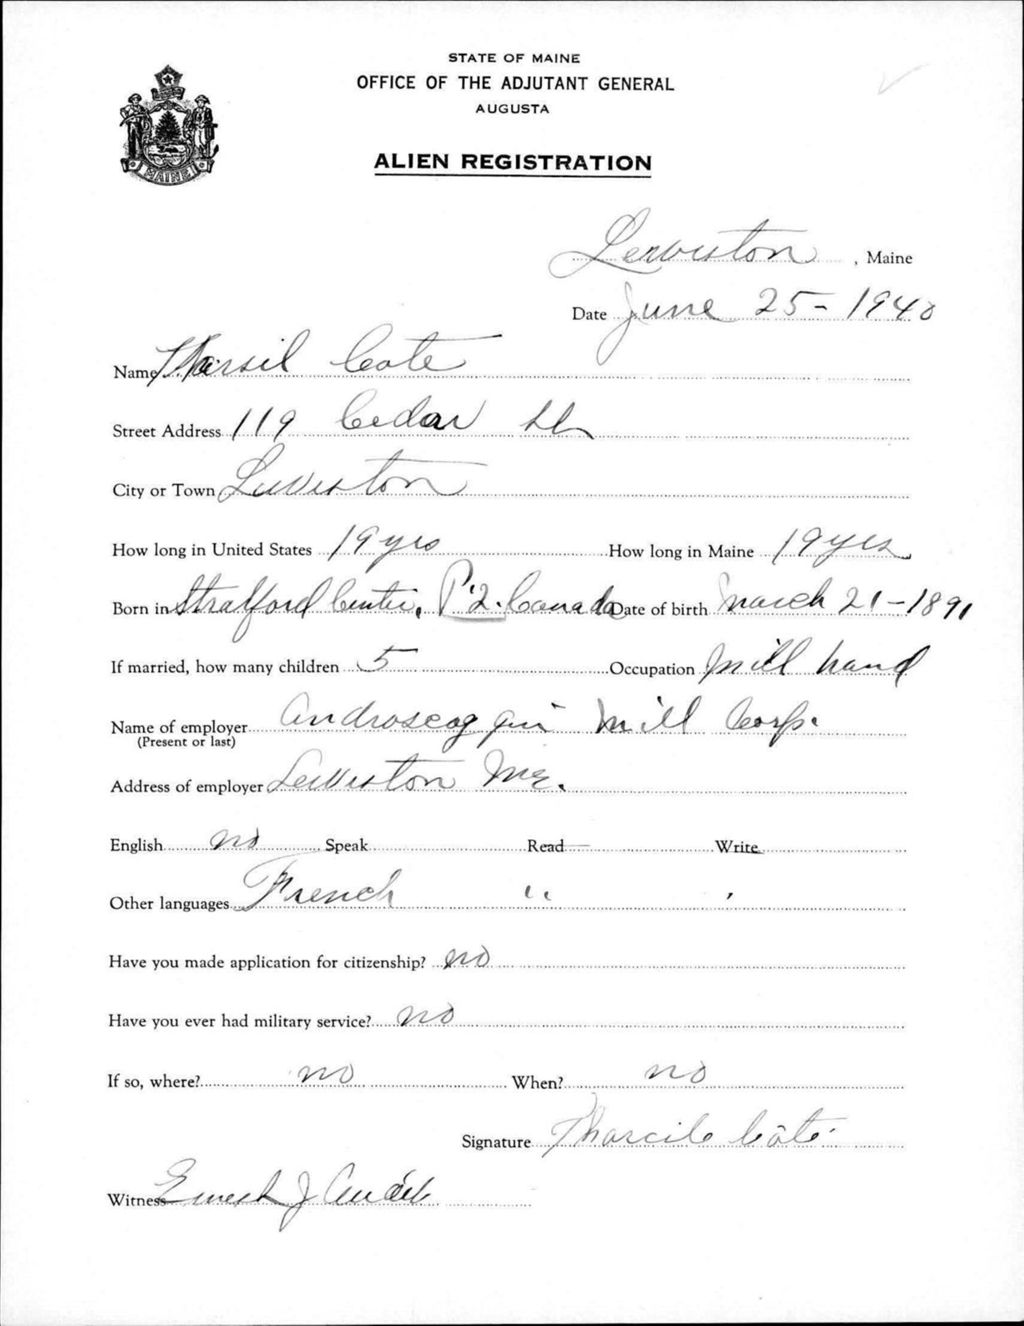 STATE OF MAINE
OFFICE OF THE ADJUTANT GENERAL
AUGUSTA
ALIEN REGISTRATION
MAINE
Lewiston, Maine
Date June 25-1940
Name Tharsil Cote
Street Address 119 Cedar St
City or Town Lewiston
How long in United States 19 yrs How long in Maine 19 yrs
Born in Stratford Center, P.2. Canada Date of birth March 21-1891
If married, how many children 5 Occupation Mill hand
Name of employer Androscoggin Mill Corp.
(Present or last)
Address of employer Lewiston Me.
English no Speak Read Write
Other languages French " "
Have you made application for citizenship? no
Have you ever had military service? no
If so, where? no When? no
Signature Tharcile Côté
Witness Ernest J